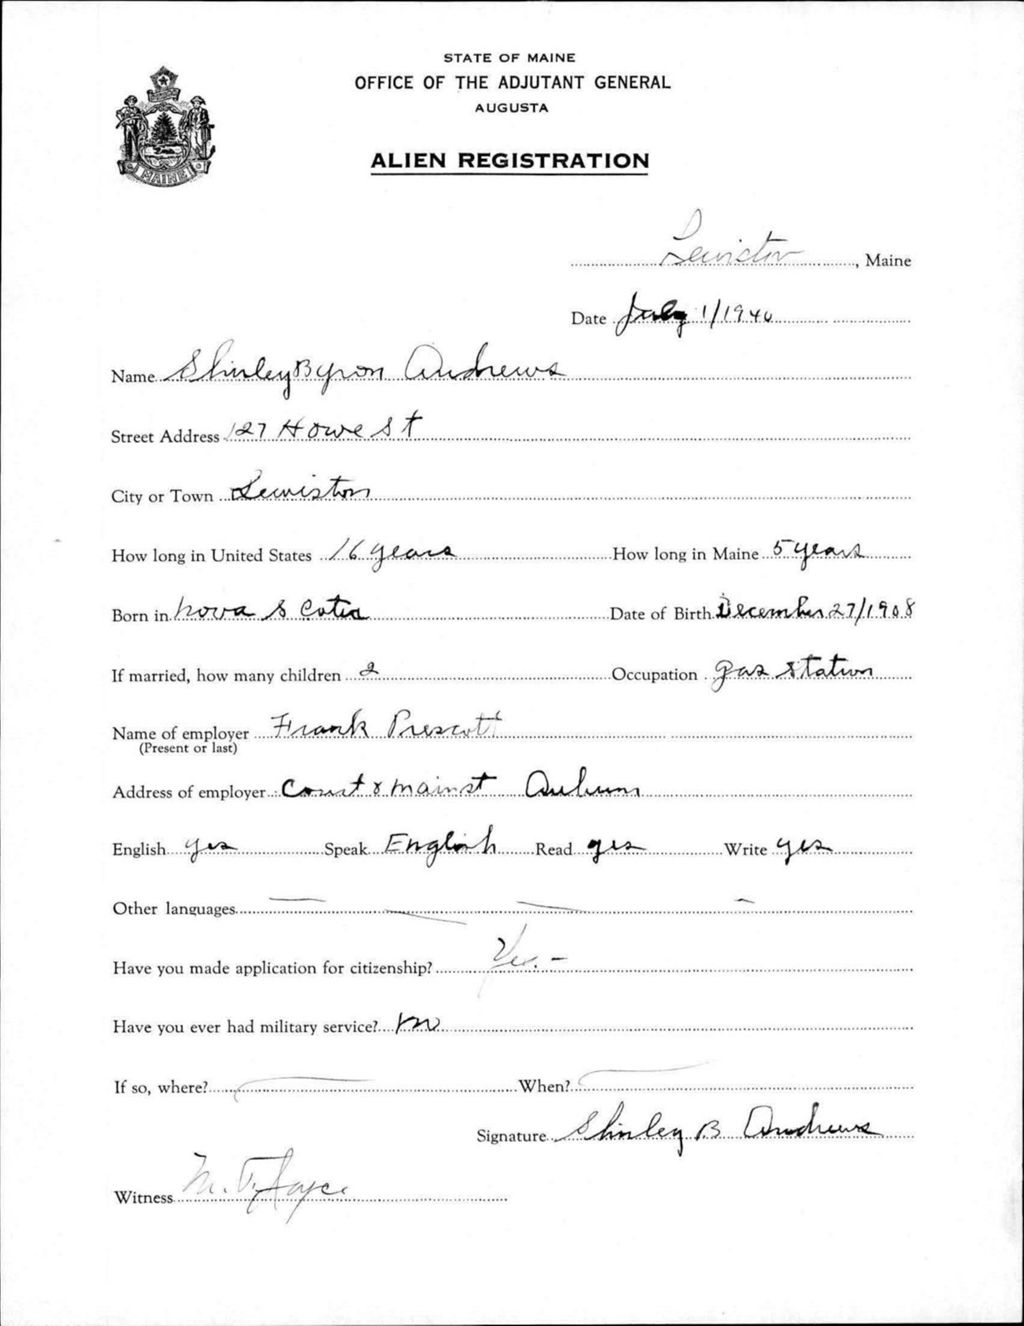 STATE OF MAINE
OFFICE OF THE ADJUTANT GENERAL
AUGUSTA
ALIEN REGISTRATION
MAINE
Lewiston, Maine
Date July 1/1940
Name Shirley Byron Andrews
Street Address 127 Howe St
City or Town Lewiston
How long in United States 16 years How long in Maine 5 years
Born in Nova Scotia Date of Birth December 27/1908
If married, how many children 2 Occupation gas station
Name of employer Frank Prescott
(Present or last)
Address of employer Court & main st Auburn
English yes Speak English Read yes Write yes
Other languages
Have you made application for citizenship? Yes. -
Have you ever had military service? no
If so, where? When?
Signature Shirley B Andrews
Witness M. Joyce